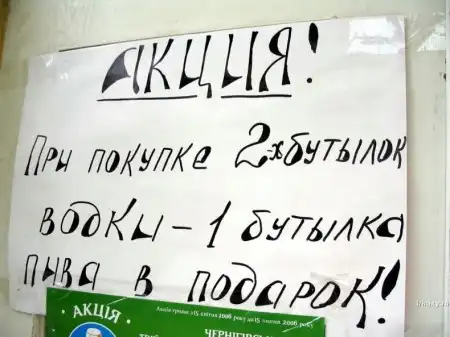 АКЦИЯ!
При покупке 2-х бутылок
водки – 1 бутылка
пива в подарок!
АКЦІЯ
Акція триває з 15 квітня 2006 року до 15 липня 2006 року